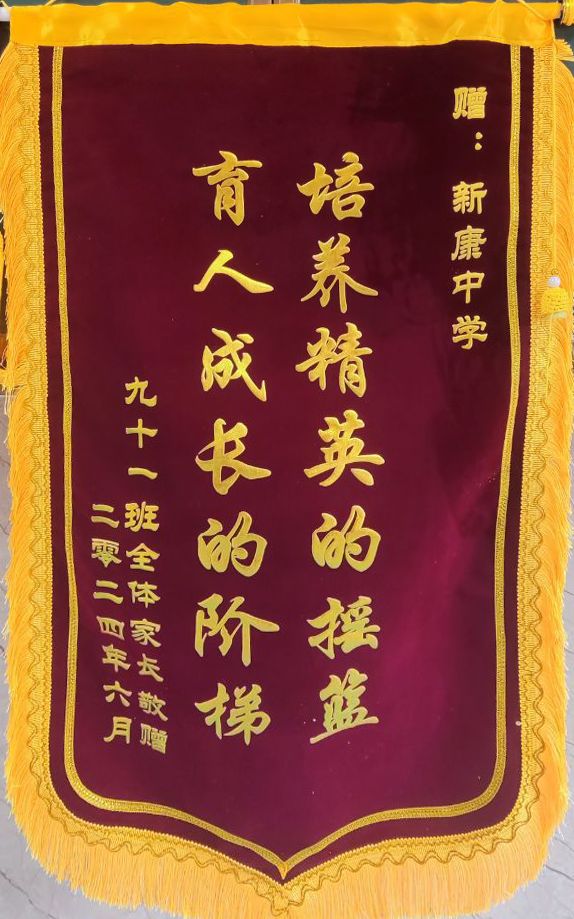 赠：新康中学
培养精英的摇篮
育人成长的阶梯
九十一班全体家长敬赠
二零二四年六月